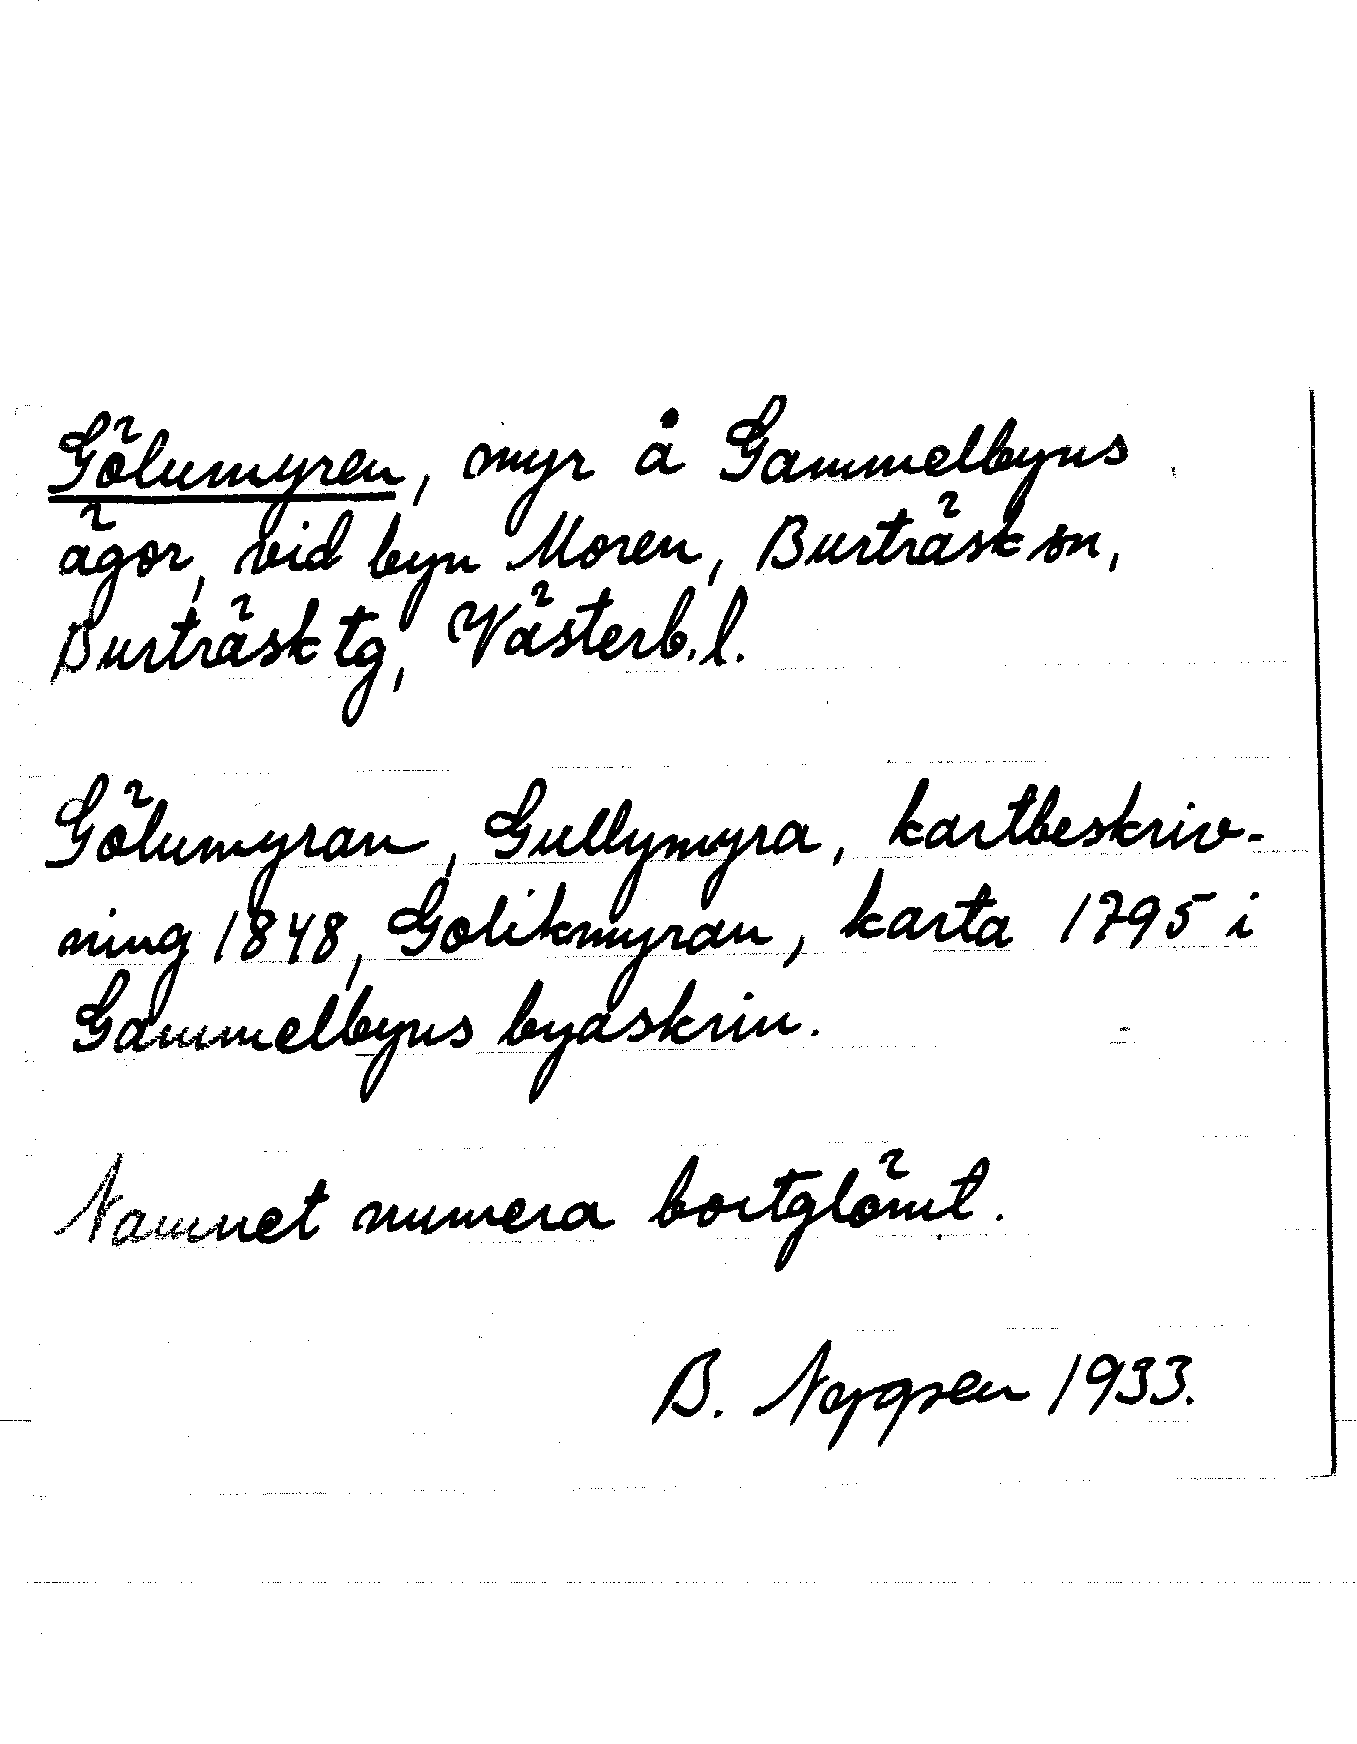 Gölumyren, myr å Gammelbyns
ägor, vid byn Moren, Burträsk sn,
Burträsk tg, Västerb.l.
Gölumyran, Gullymyra, kartbeskriv-
ning 1848, Golikmyran, karta 1795 i
Gammelbyns byaskrin.
Namnet numera bortglömt.
B. 1933.